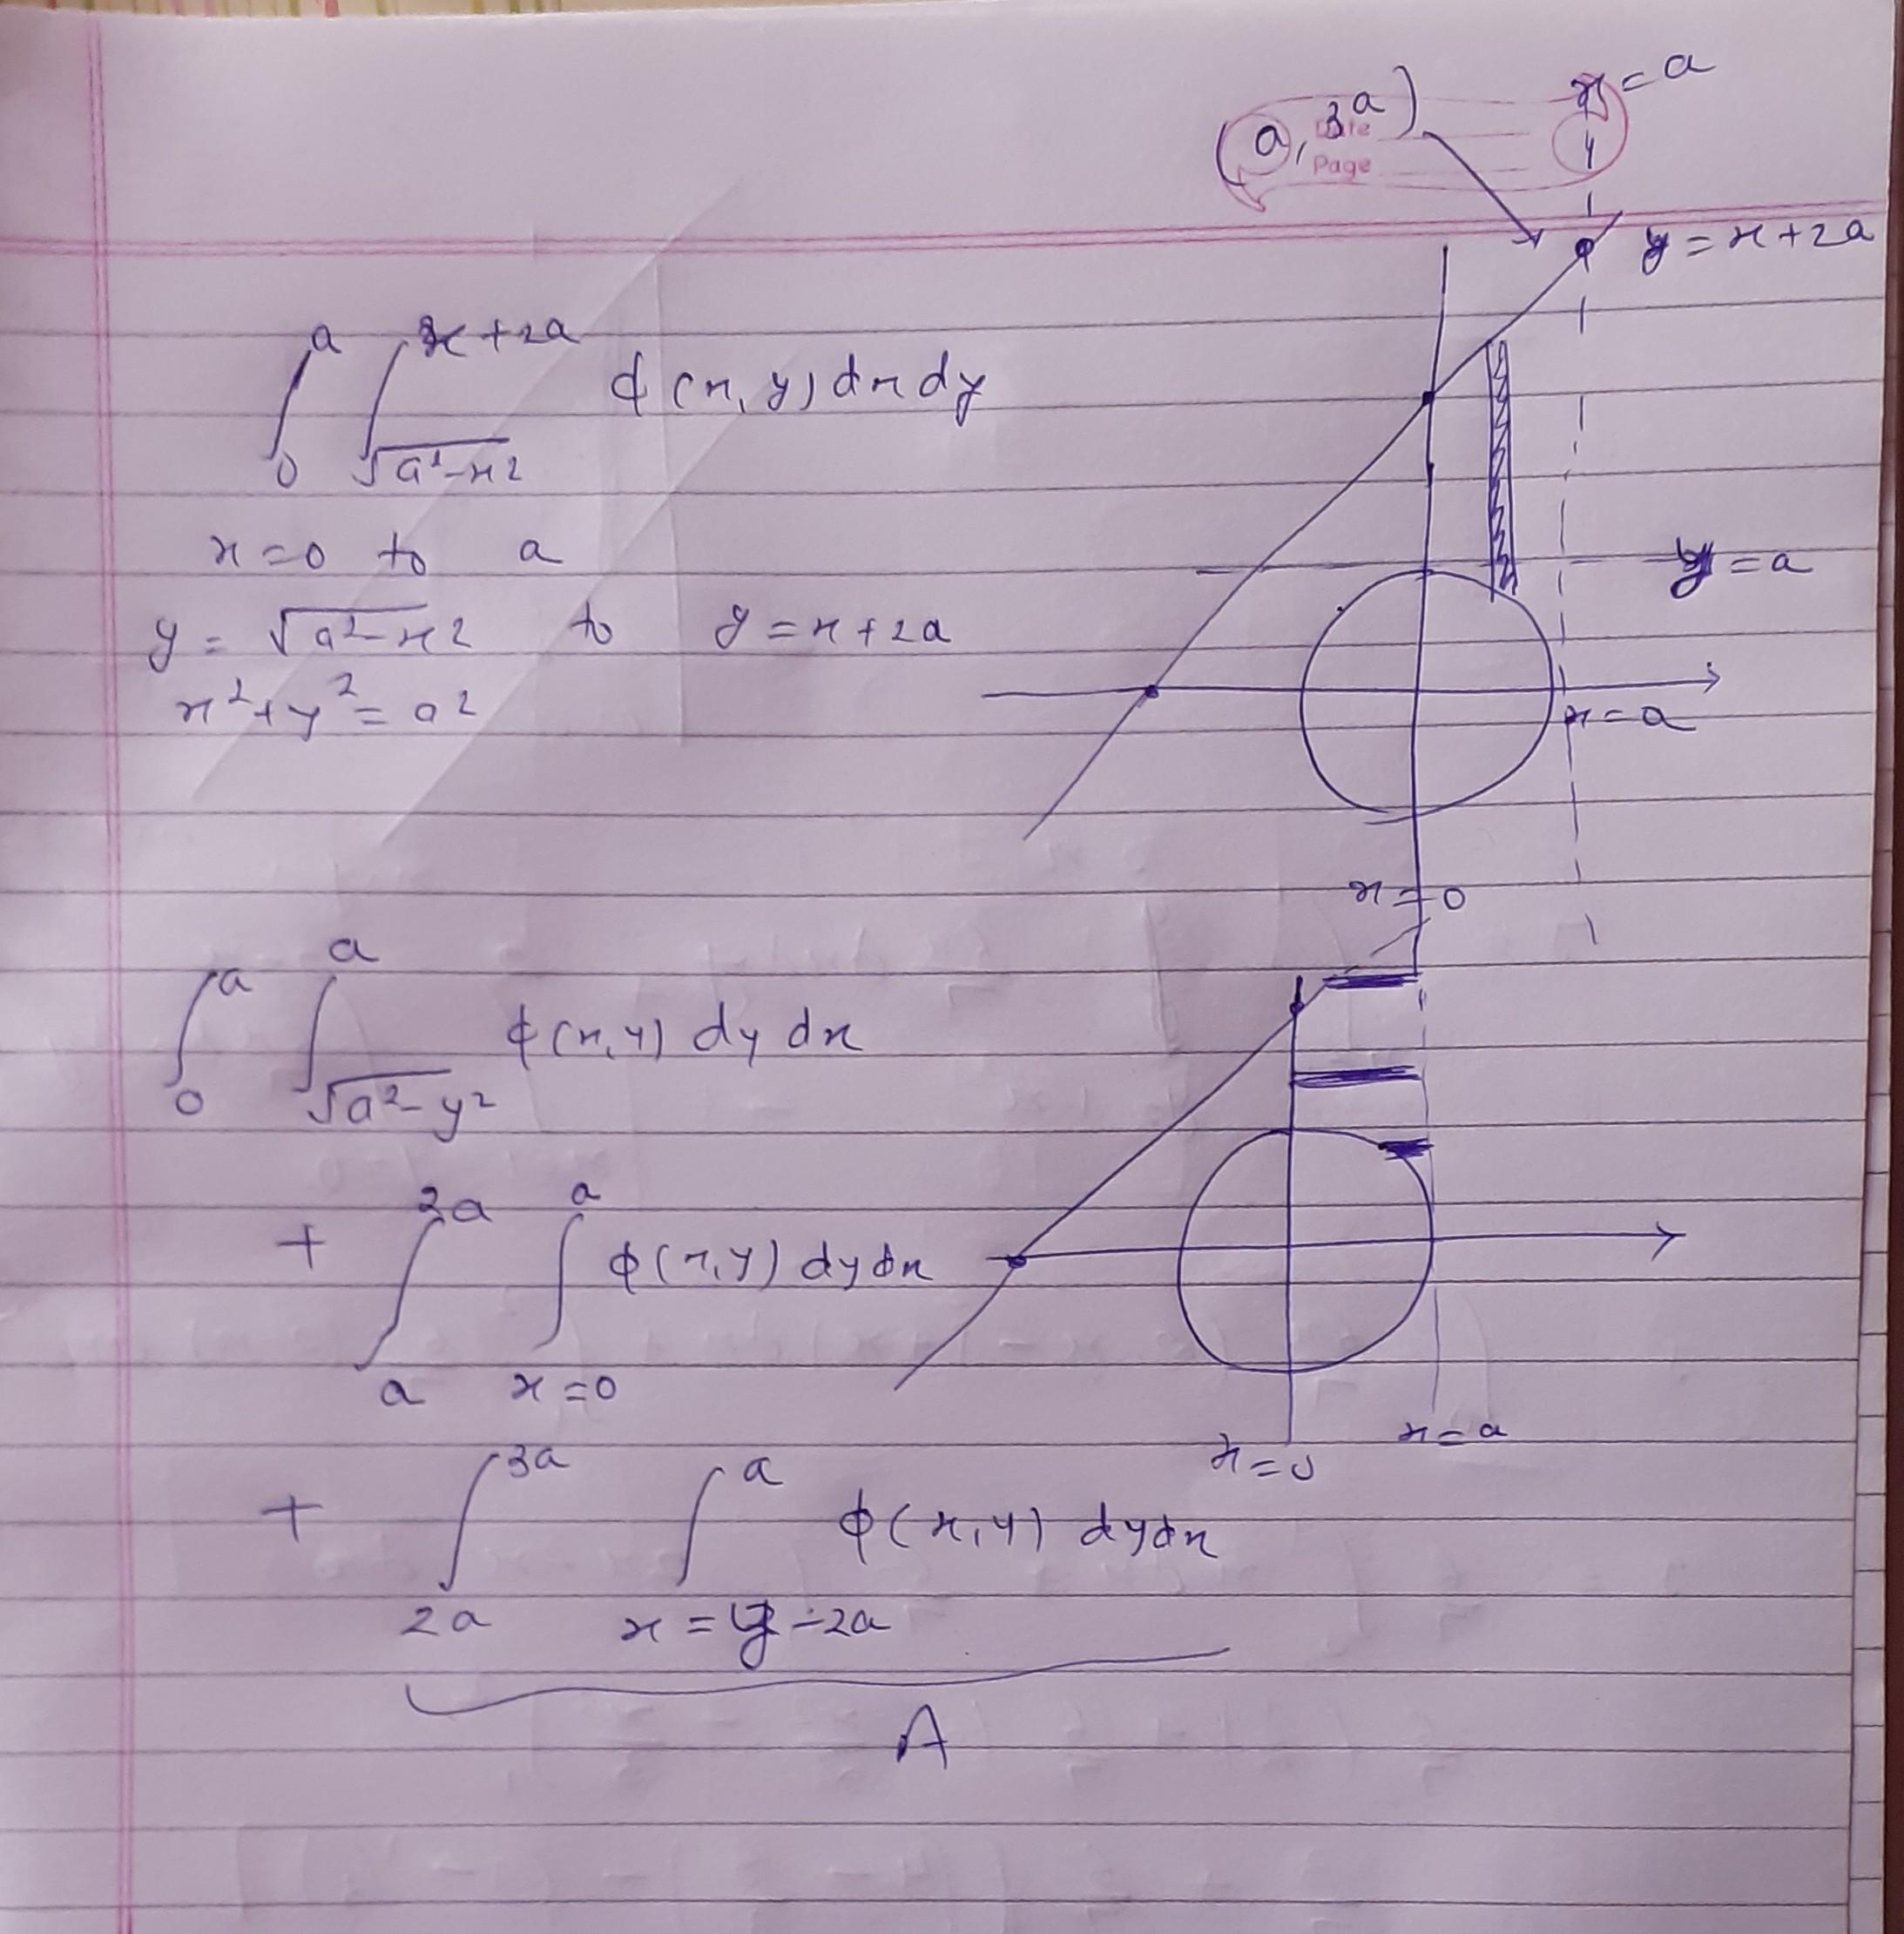 x = a
(a, 3a)
Date
Page
y = x + 2a
∫₀ᵃ ∫_{√(a²-x²)}^{x+2a} ϕ(x, y) dx dy
x = 0 to a
y = a
y = √(a²-x²) to y = x + 2a
x² + y² = a²
x = a
x = 0
∫₀ᵃ ∫_{√(a²-y²)}^{a} ϕ(x, y) dy dx
+ ∫ₐ^{2a} ∫_{x=0}^{a} ϕ(x, y) dy dx
x = 0
x = a
+ ∫_{2a}^{3a} ∫_{x=y-2a}^{a} ϕ(x, y) dy dx
A